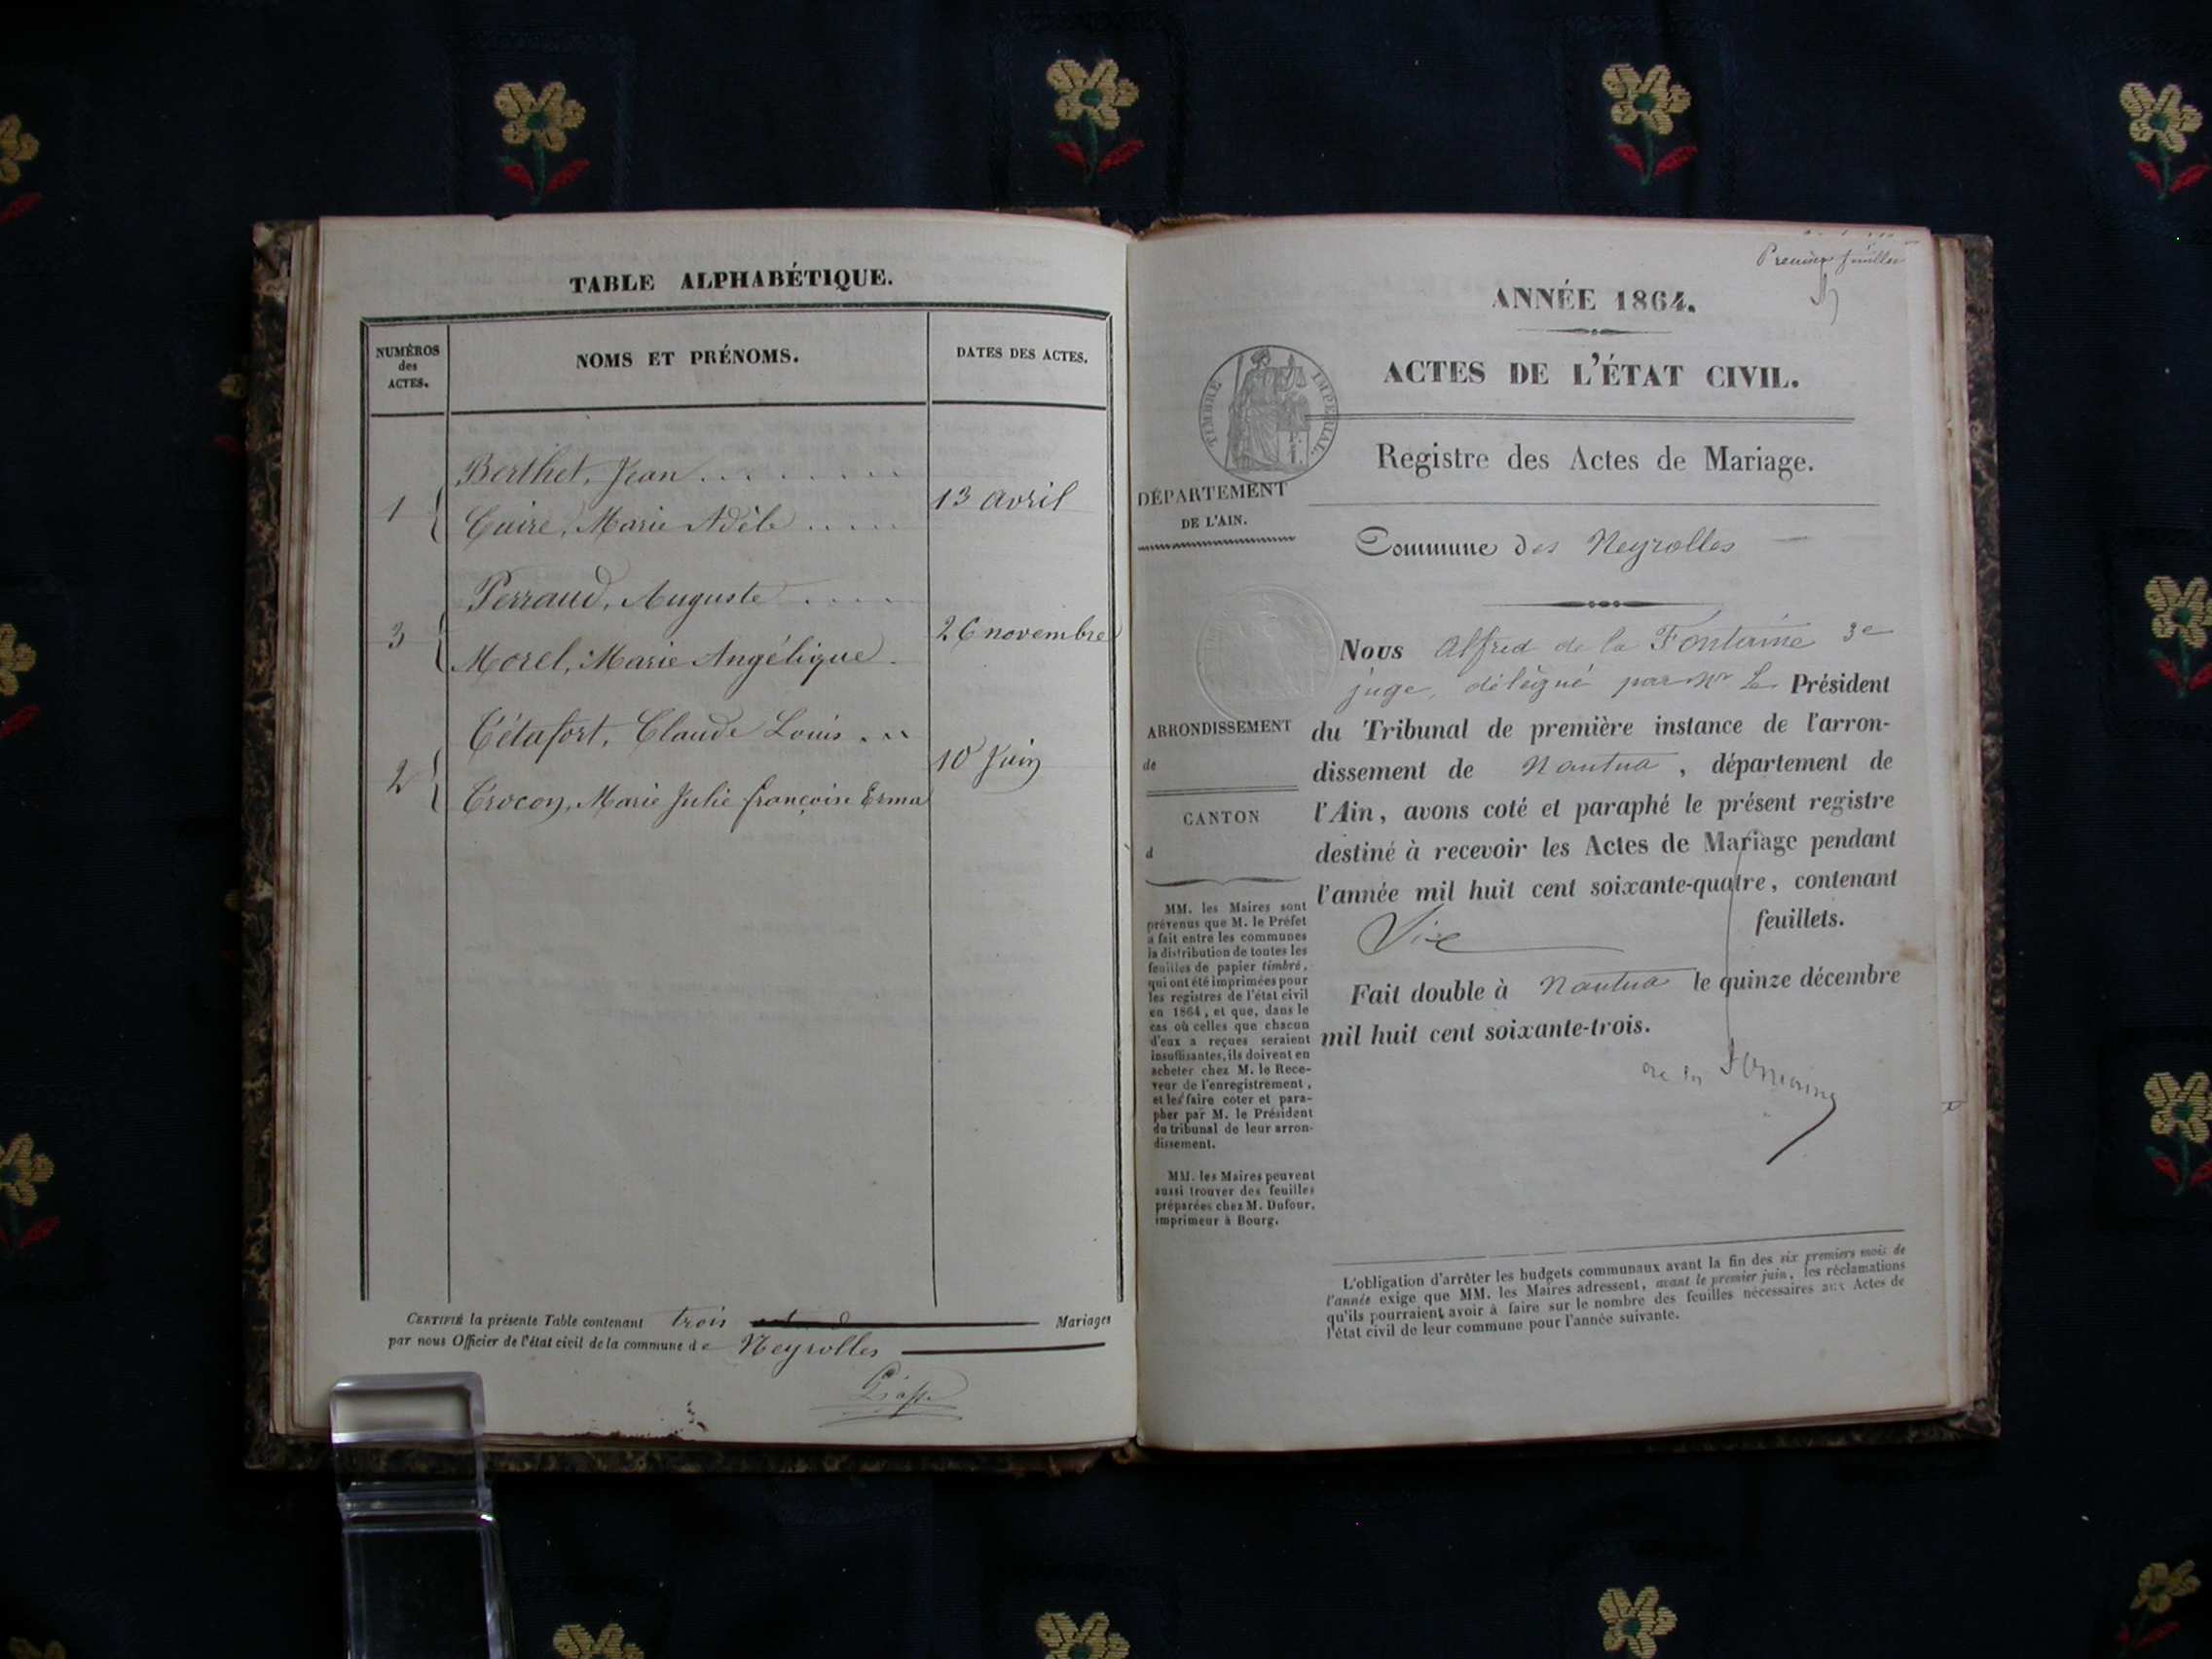 TABLE ALPHABÉTIQUE.
NUMÉROS
des
ACTES.
NOMS ET PRÉNOMS.
DATES DES ACTES.
Berthet, Jean
1
13 avril
Cuire, Marie Adèle
Perraud, Auguste
3
26 novembre
Morel, Marie Angélique
Tétafort, Claude Louis
2
10 Juin
Crocon, Marie Julie françoise Erma
CERTIFIÉ la présente Table contenant trois Mariages
par nous Officier de l'état civil de la commune de Neyrolles
Premier feuillet
ANNÉE 1864.
ACTES DE L'ÉTAT CIVIL.
TIMBRE IMPÉRIAL.
Registre des Actes de Mariage.
DÉPARTEMENT
DE L'AIN.
Commune des Neyrolles
Nous Alfred de la Fontaine 3e
juge, délégué par Mr Le Président
du Tribunal de première instance de l'arron-
dissement de Nantua, département de
l'Ain, avons coté et paraphé le présent registre
destiné à recevoir les Actes de Mariage pendant
l'année mil huit cent soixante-quatre, contenant
Six feuillets.
Fait double à Nantua le quinze décembre
mil huit cent soixante-trois.
de la Fontaine
ARRONDISSEMENT
de
CANTON
d
MM. les Maires sont
prévenus que M. le Préfet
a fait entre les communes
la distribution de toutes les
feuilles de papier timbré,
qui ont été imprimées pour
les registres de l'état civil
en 1864, et que, dans le
cas où celles que chacun
d'eux a reçues seraient
insuffisantes, ils doivent en
acheter chez M. le Rece-
veur de l'enregistrement,
et les faire coter et para-
pher par M. le Président
du tribunal de leur arron-
dissement.
MM. les Maires peuvent
aussi trouver des feuilles
préparées chez M. Dufour,
imprimeur à Bourg.
L'obligation d'arrêter les budgets communaux avant la fin des six premiers mois de
l'année exige que MM. les Maires adressent, avant le premier juin, les réclamations
qu'ils pourraient avoir à faire sur le nombre des feuilles nécessaires aux Actes de
l'état civil de leur commune pour l'année suivante.